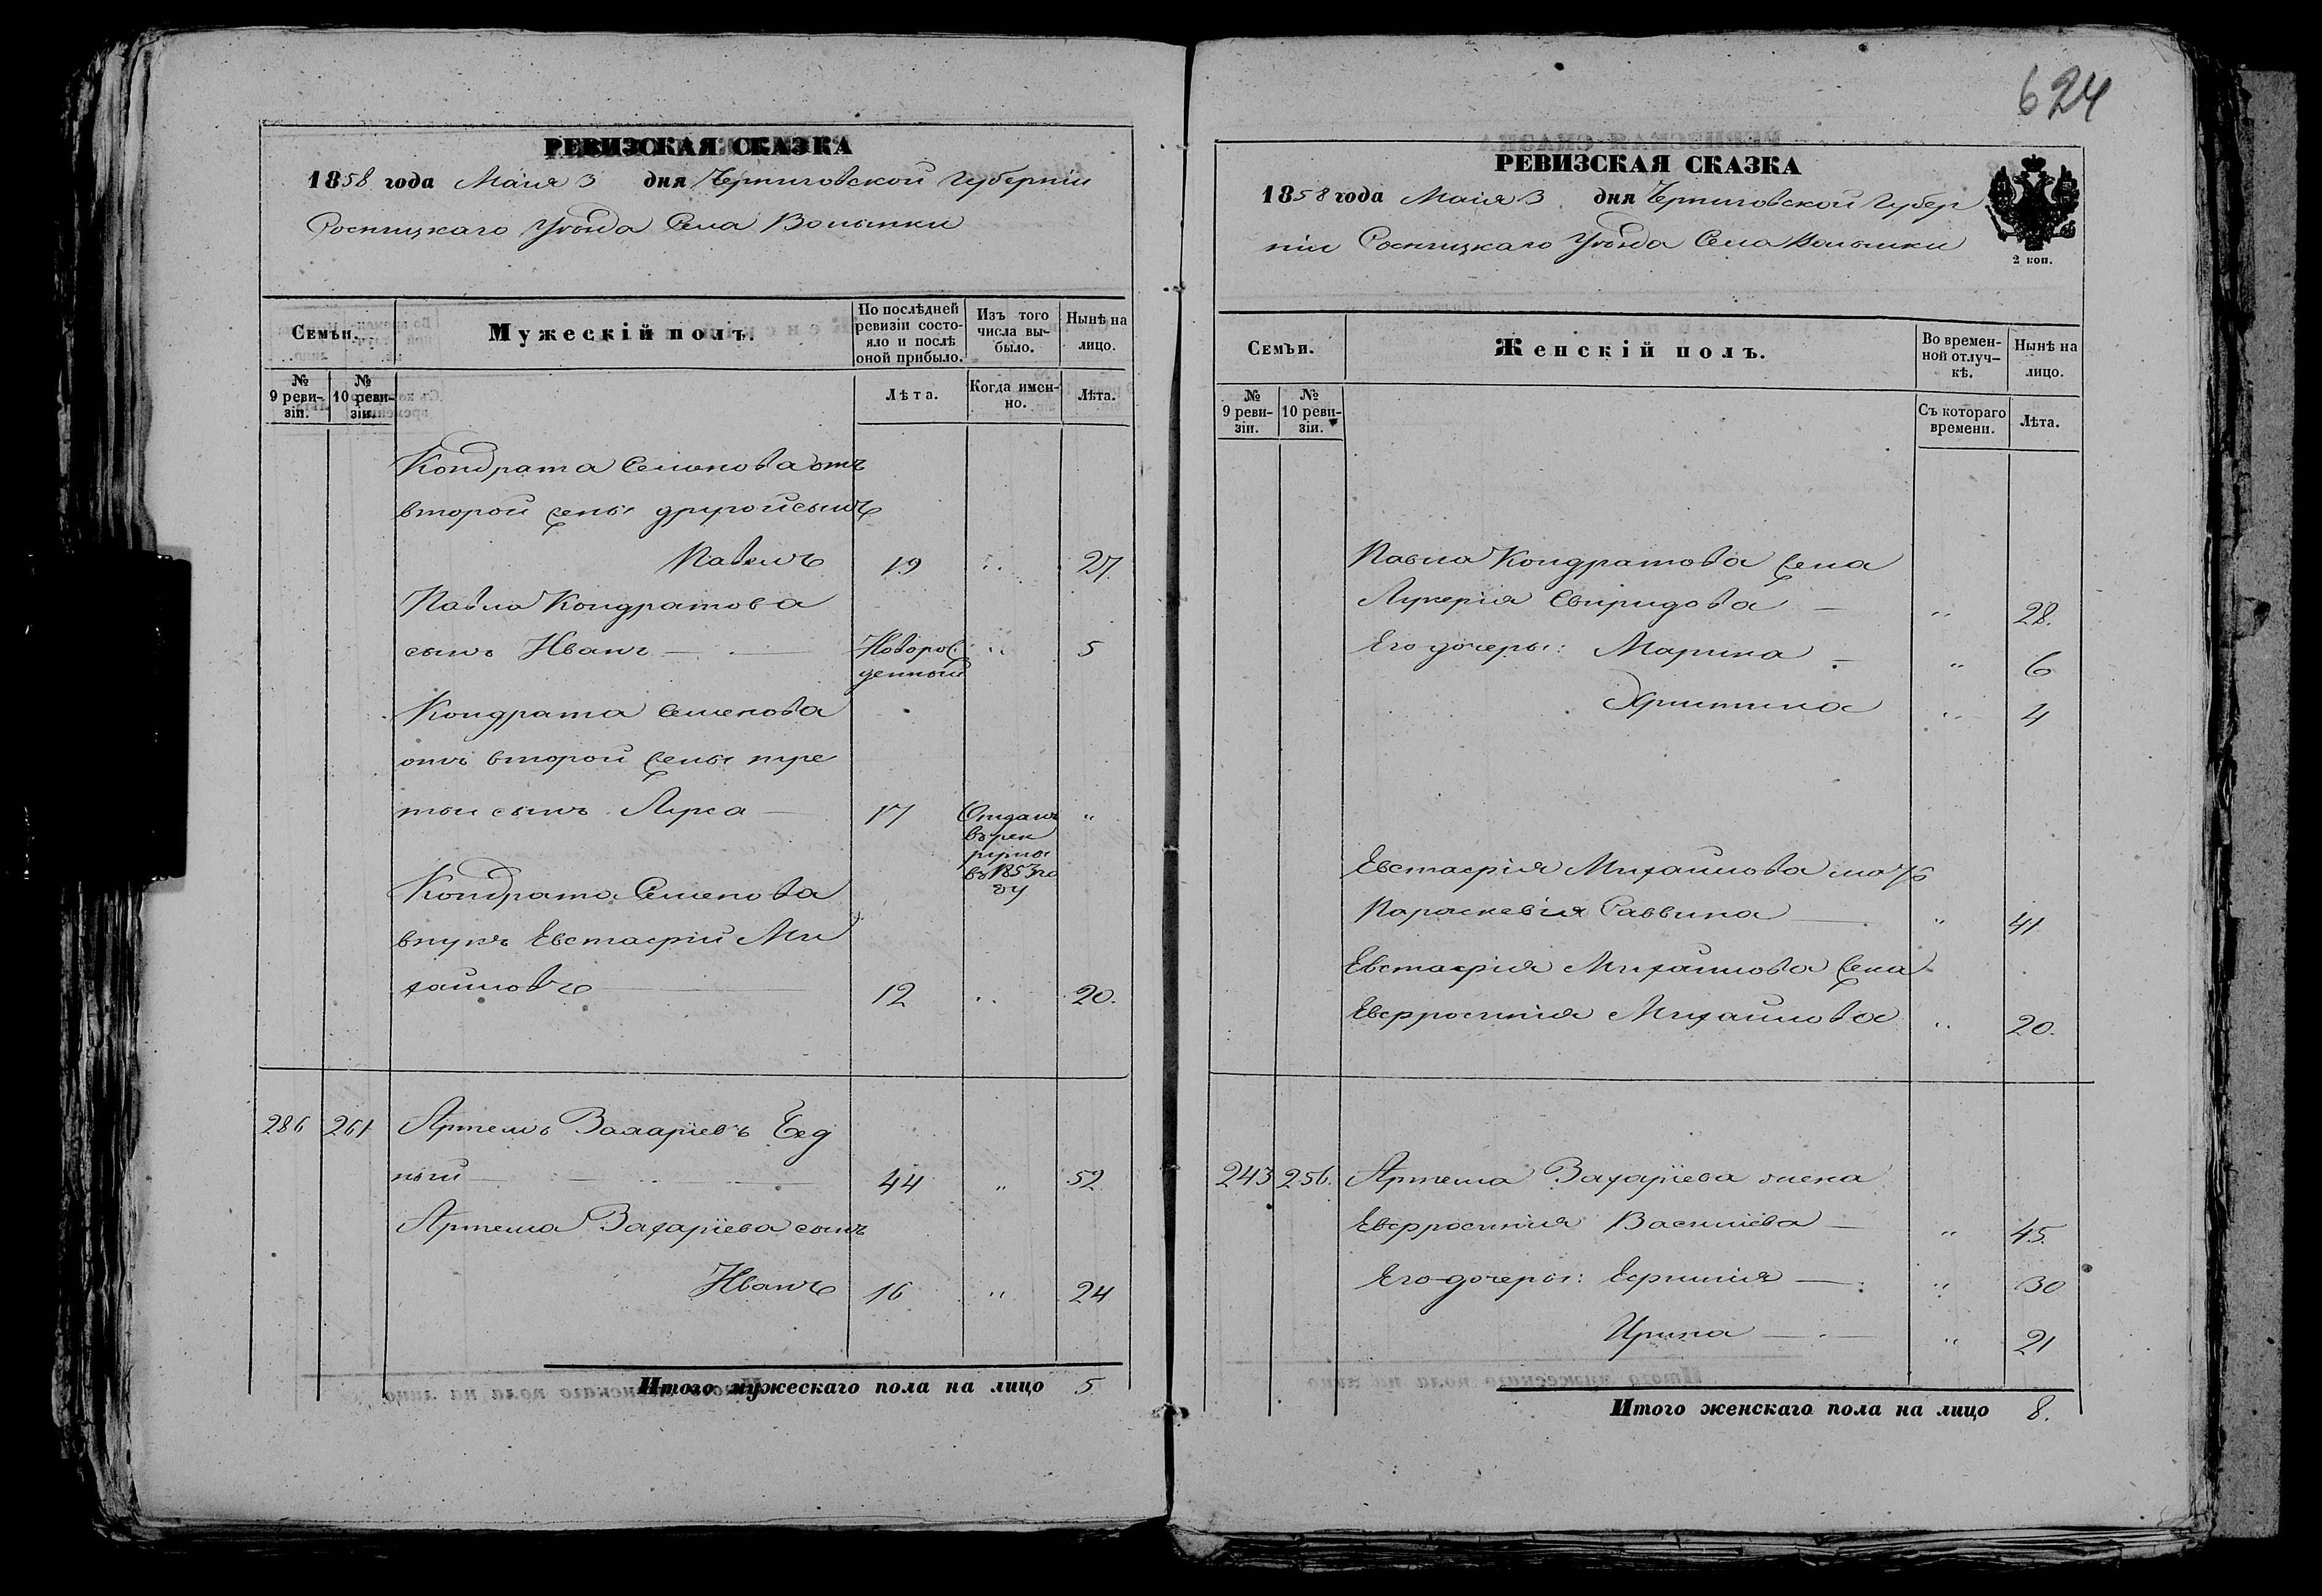 624
РЕВИЗСКАЯ СКАЗКА
1858 года Маія 3 дня Черниговской Губерніи
Сосницкаго Уѣзда Села Волынки
Семьи.
Мужескій полъ.
По послѣдней ревизіи состояло и послѣ оной прибыло.
Изъ того числа выбыло.
Нынѣ на лицо.
№ 9 ревизіи.
№ 10 ревизіи.
Лѣта.
Когда именно.
Лѣта.
Кондрата Семенова отъ
второй жены другой сынъ
Павелъ 19 " 27.
Павла Кондратова
сынъ Иванъ — Новорож " 5
денный
Кондрата Семенова
отъ второй жены тре
тои сынъ Лука — 17 Отданъ "
въ рек
руты
въ 1853 го
ду
Кондрата Семенова
внукъ Евстафій Ми
хаиловъ — 12 " 20.
286 261 Артемъ Захаріевъ Бед
ный — 44 " 52
Артема Захаріева сынъ
Иванъ 16 " 24
Итого мужескаго пола на лицо 5.
РЕВИЗСКАЯ СКАЗКА
1858 года Маія 3 дня Черниговской Губер
ніи Сосницкаго Уѣзда Села Волынки
2 коп.
Семьи.
Женскій полъ.
Во временной отлучкѣ.
Нынѣ на лицо.
№ 9 ревизіи.
№ 10 ревизіи.
Съ котораго времени.
Лѣта.
Павла Кондратова жена
Лукерія Свиридова — " 28.
Его дочеры: Марина — " 6
Христина " 4
Евстафія Михаилова мать
Параскевія Саввина — " 41
Евстафія Михаилова жена
Евфросинія Михаилова " 20.
243 256. Артема Захаріева жена
Евфросинія Василіева — " 45.
Его дочеры: Ефимія — " 30
Ирина — " 21
Итого женскаго пола на лицо 8.